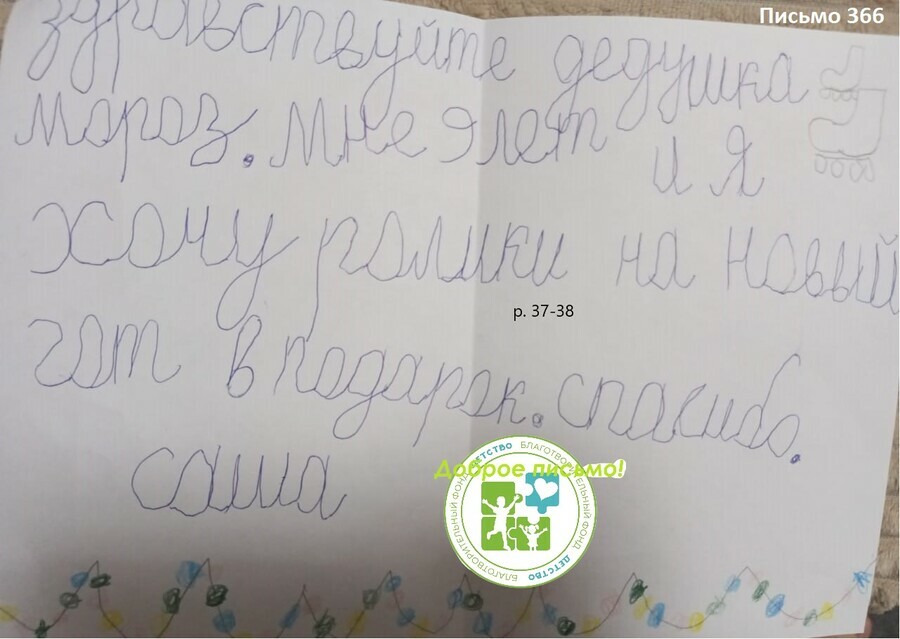 Письмо 366
здравствуйте дедушка
мороз. мне 9 лет и я
хочу ролики на новый
гот в подарок. спасибо.
саша
р. 37-38
Доброе письмо!
БЛАГОТВОРИТЕЛЬНЫЙ ФОНД ДЕТСТВО
БЛАГОТВОРИТЕЛЬНЫЙ ФОНД ДЕТСТВО